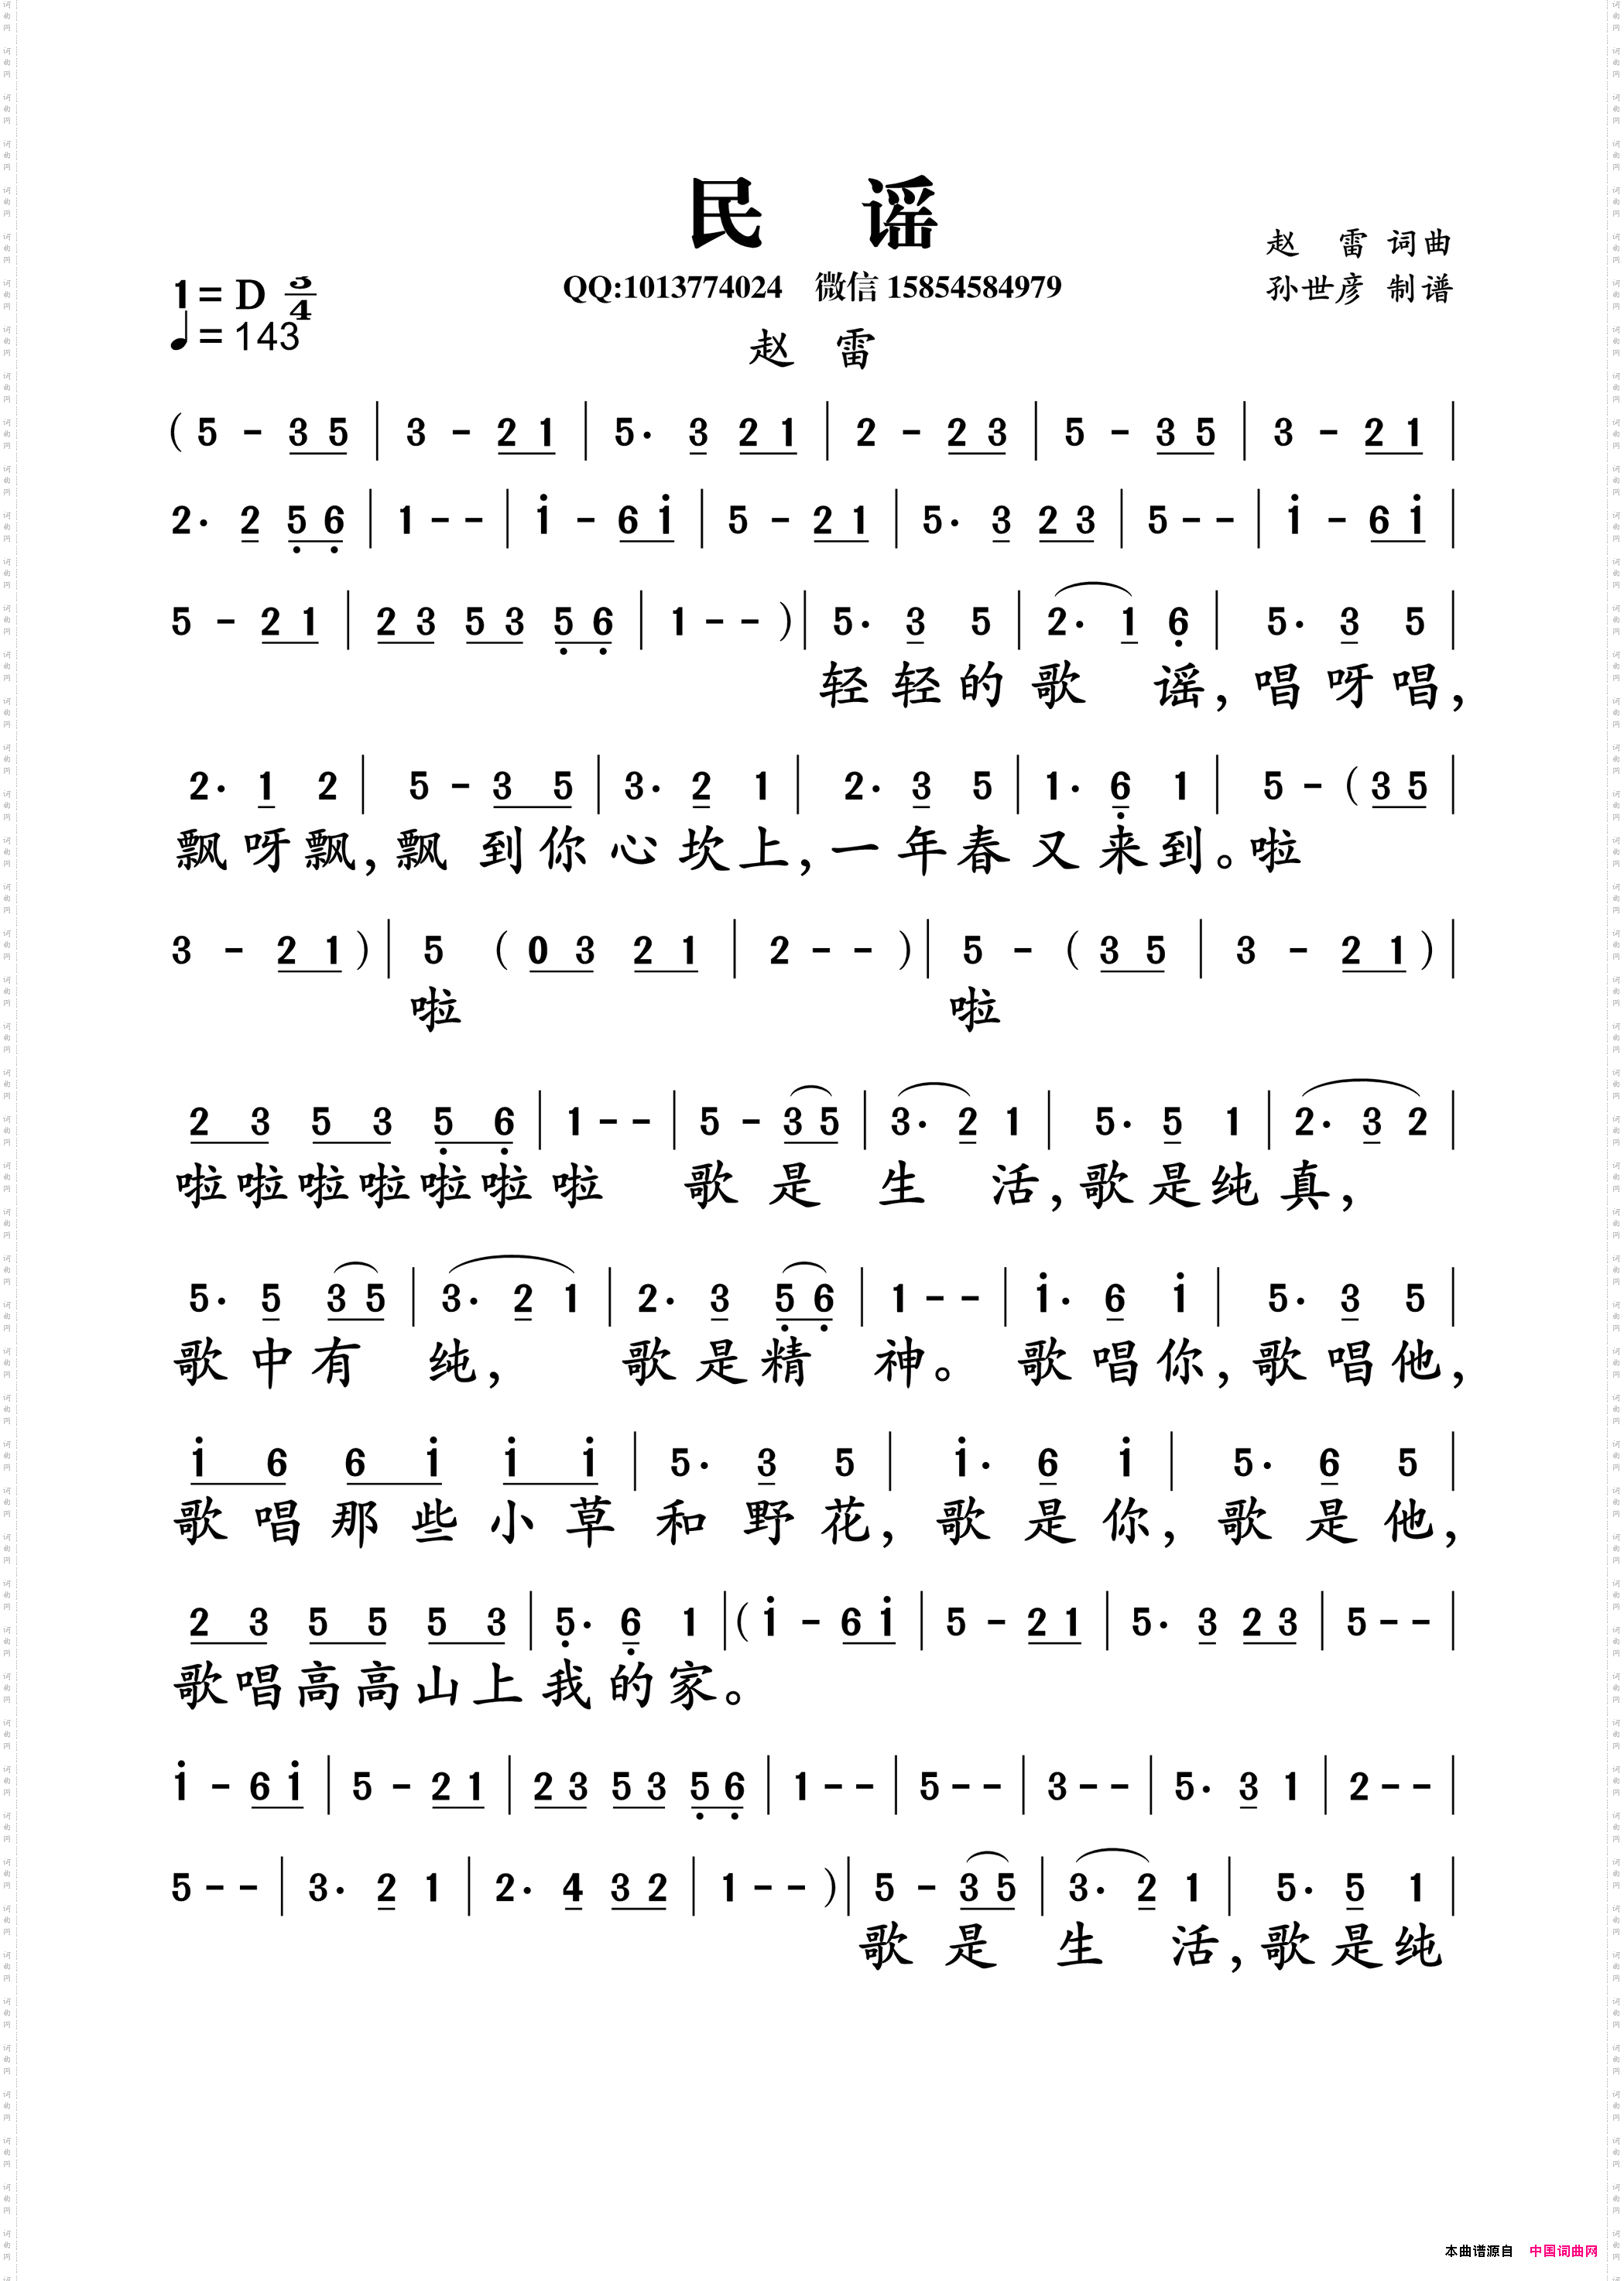 民 谣
赵 雷 词曲
QQ:1013774024 微信 15854584979
孙世彦 制谱
1= D 3/4
♩= 143
赵 雷
( 5 - 3 5 | 3 - 2 1 | 5· 3 2 1 | 2 - 2 3 | 5 - 3 5 | 3 - 2 1 |
2· 2 5̣ 6̣ | 1 - - | 1̇ - 6 1̇ | 5 - 2 1 | 5· 3 2 3 | 5 - - | 1̇ - 6 1̇ |
5 - 2 1 | 2 3 5 3 5̣ 6̣ | 1 - - ) | 5· 3 5 | 2· 1 6̣ | 5· 3 5 |
轻 轻 的 歌 谣, 唱 呀 唱,
2· 1 2 | 5 - 3 5 | 3· 2 1 | 2· 3 5 | 1· 6̣ 1 | 5 - ( 3 5 |
飘 呀 飘, 飘 到 你 心 坎 上, 一 年 春 又 来 到。 啦
3 - 2 1 ) | 5 ( 0 3 2 1 | 2 - - ) | 5 - ( 3 5 | 3 - 2 1 ) |
啦 啦
2 3 5 3 5̣ 6̣ | 1 - - | 5 - 3 5 | 3· 2 1 | 5· 5 1 | 2· 3 2 |
啦 啦 啦 啦 啦 啦 啦 歌 是 生 活, 歌 是 纯 真,
5· 5 3 5 | 3· 2 1 | 2· 3 5̣ 6̣ | 1 - - | 1̇· 6 1̇ | 5· 3 5 |
歌 中 有 纯, 歌 是 精 神。 歌 唱 你, 歌 唱 他,
1̇ 6 6 1̇ 1̇ 1̇ | 5· 3 5 | 1̇· 6 1̇ | 5· 6 5 |
歌 唱 那 些 小 草 和 野 花, 歌 是 你, 歌 是 他,
2 3 5 5 5 3 | 5̣· 6̣ 1 | ( 1̇ - 6 1̇ | 5 - 2 1 | 5· 3 2 3 | 5 - - |
歌 唱 高 高 山 上 我 的 家。
1̇ - 6 1̇ | 5 - 2 1 | 2 3 5 3 5̣ 6̣ | 1 - - | 5 - - | 3 - - | 5· 3 1 | 2 - - |
5 - - | 3· 2 1 | 2· 4 3 2 | 1 - - ) | 5 - 3 5 | 3· 2 1 | 5· 5 1 |
歌 是 生 活, 歌 是 纯
本曲谱源自 中国词曲网